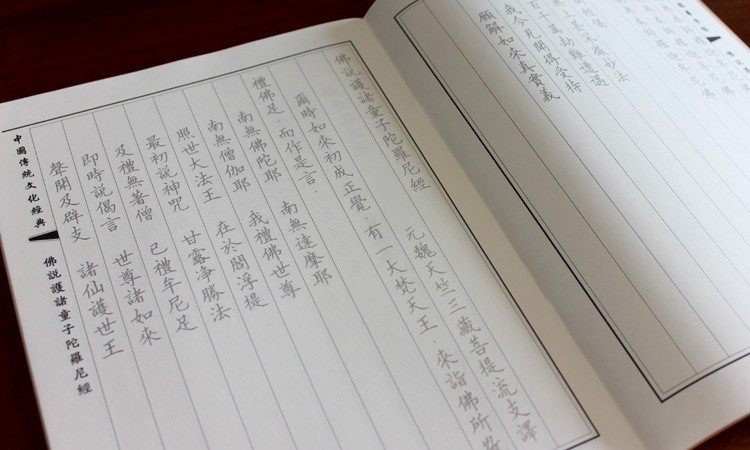 無上甚深微妙法
百千萬劫難遭遇
我今見聞得受持
願解如來真實義
佛說護諸童子陀羅尼經
元魏天竺三藏菩提流支譯
爾時如來初成正覺．有一大梵天王．來詣佛所
禮佛足．而作是言．
南無佛陀耶　南無達摩耶
南無僧伽耶　我禮佛世尊
照世大法王　在於閻浮提
最初說神咒　甘露淨勝法
及禮無著僧　已禮牟尼足
即時說偈言　世尊諸如來
聲聞及辟支　諸仙護世王
中國傳統文化經典　佛說護諸童子陀羅尼經